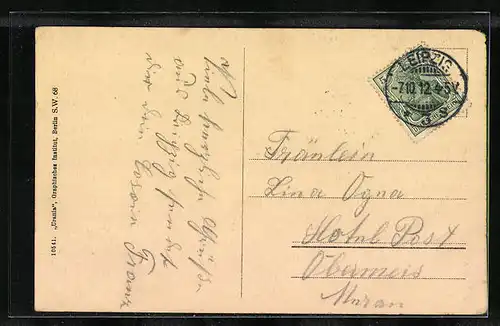 10541. „Urania", Graphisches Institut, Berlin S.W. 68
Viele herzliche Grüße
aus Leipzig sendet
dir dein Cosara Franz
LEIPZIG
-7.10.12.4-5V.
Fräulein
Lina Ogna
Hotel Post
Obermeis
Meran